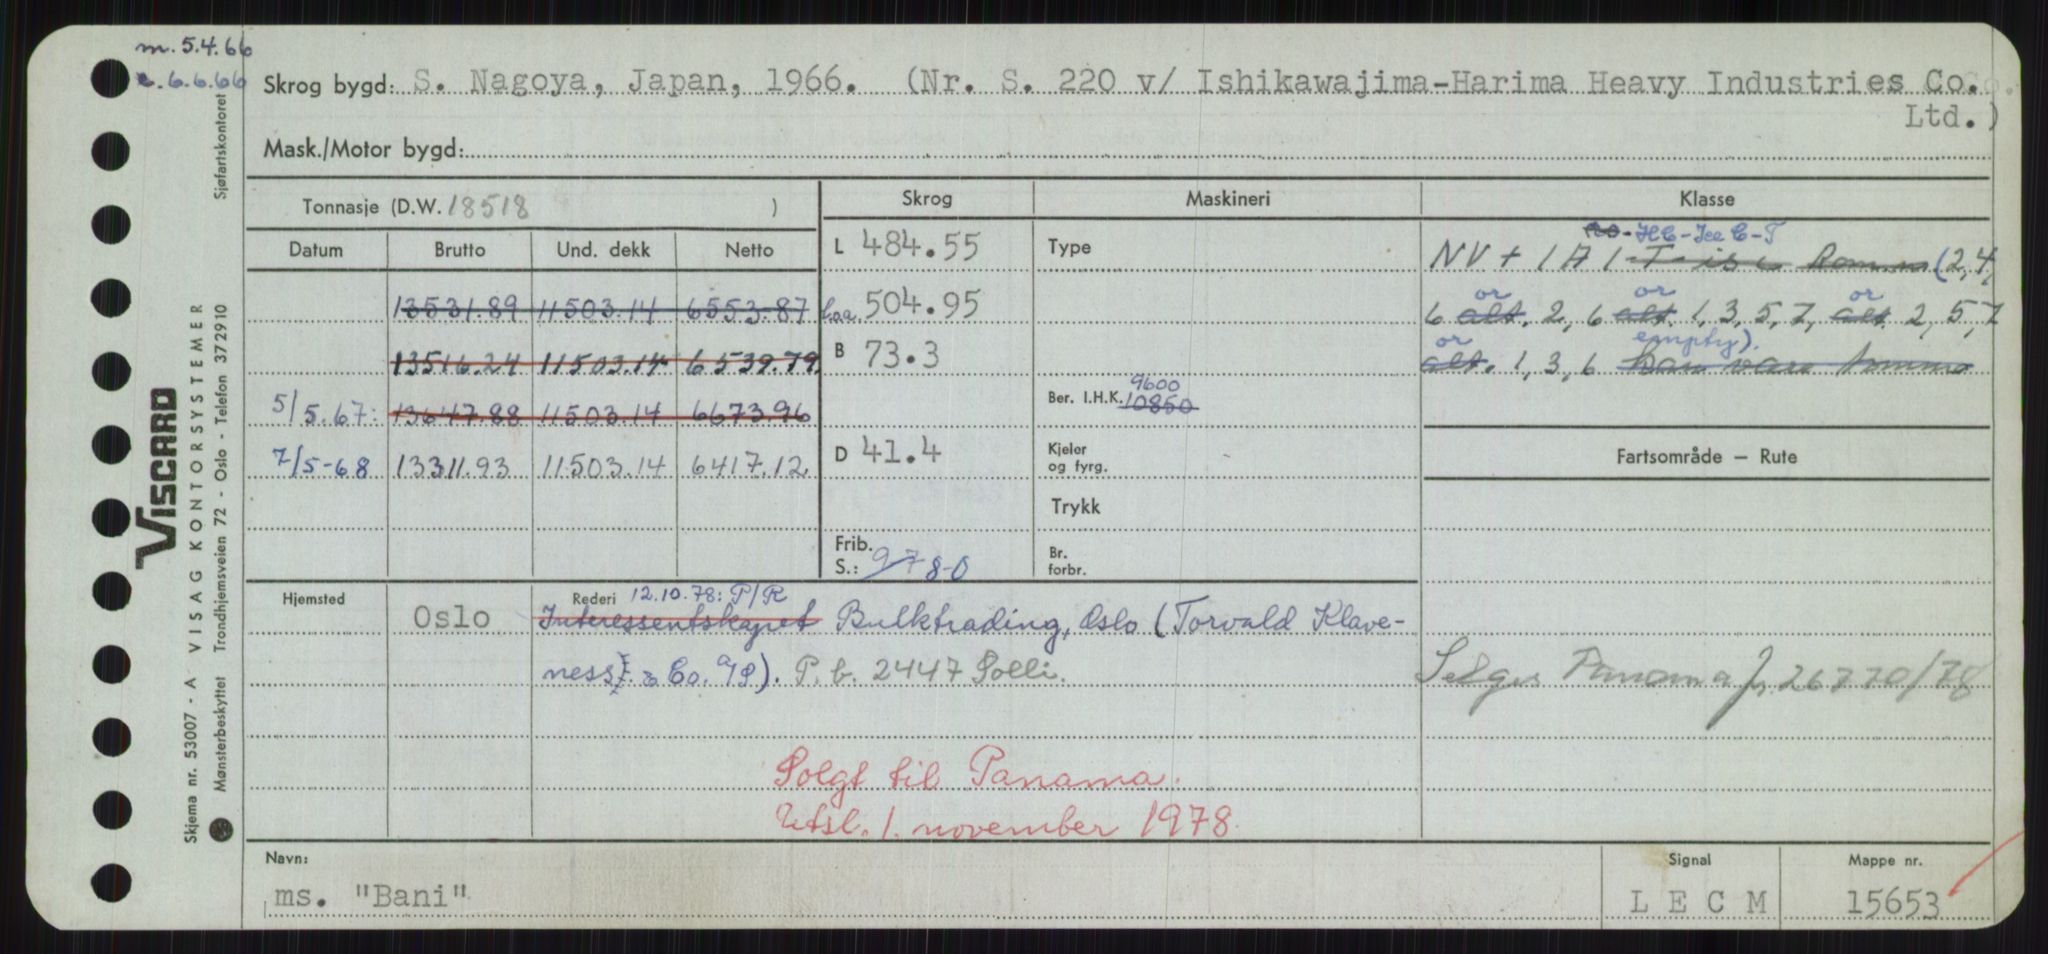 m. 5.4.66
e. 6.6.66
Skrog bygd: S. Nagoya, Japan, 1966. (Nr. S. 220 v/ Ishikawajima-Harima Heavy Industries Co.
Ltd.)
Mask./Motor bygd:
Tonnasje (D.W. 18518 )
Skrog
Maskineri
Klasse
Datum Brutto Und. dekk Netto
13531.89 11503.14 6553.87
13516.24 11503.14 6539.79
5/5.67: 13647.88 11503.14 6673.96
7/5-68 13311.93 11503.14 6417.12
L 484.55
Loa. 504.95
B 73.3
D 41.4
Frib.
S.: 978-0
Type
9600
Ber. I.H.K. 10850
Kjeler
og fyrg.
Trykk
Br.
forbr.
HC-Ice C-T
NV + 1A1-T-is c Rommene (2,4,
or or or
6 alt. 2, 6 alt. 1, 3, 5, 7, alt. 2, 5, 7
or empty).
alt. 1, 3, 6 kan være tomme
Fartsområde — Rute
Selges Panama J, 26770/78
Hjemsted Oslo
Rederi 12.10.78: P/R
Interessentskapet Bulktrading, Oslo (Torvald Klave-
ness & Co. A/S). P.b. 2447 Solli.
Solgt til Panama.
Utsl. 1. november 1978.
Navn:
ms. "Bani"
Signal
L E C M
Mappe nr.
15653
VISCARD
Skjema nr. 53007 - A VISAG KONTORSYSTEMER
Mønsterbeskyttet Trondhjemsveien 72 - Oslo - Telefon 372910
Sjøfartskontoret